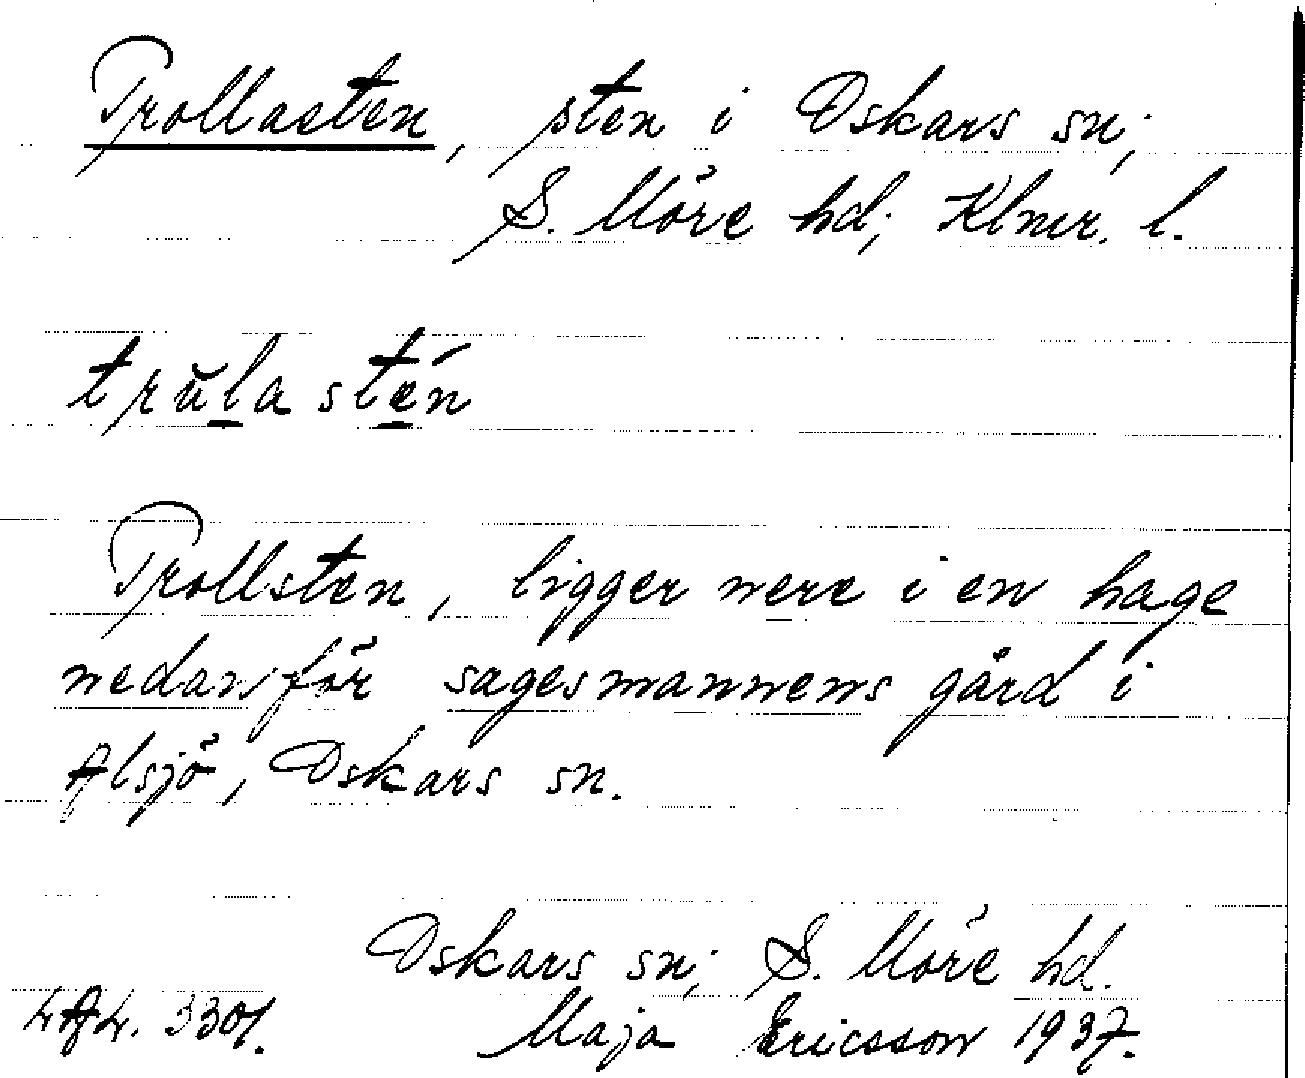 Trollasten, sten i Oskars sn;
S. Möre hd; Klmr. l.
trŭla stén
Trollsten, ligger nere i en hage
nedanför sagesmannens gård i
Alsjö, Oskars sn.
Oskars sn; S. Möre hd.
LAL. 3301. Maja Ericsson 1937.